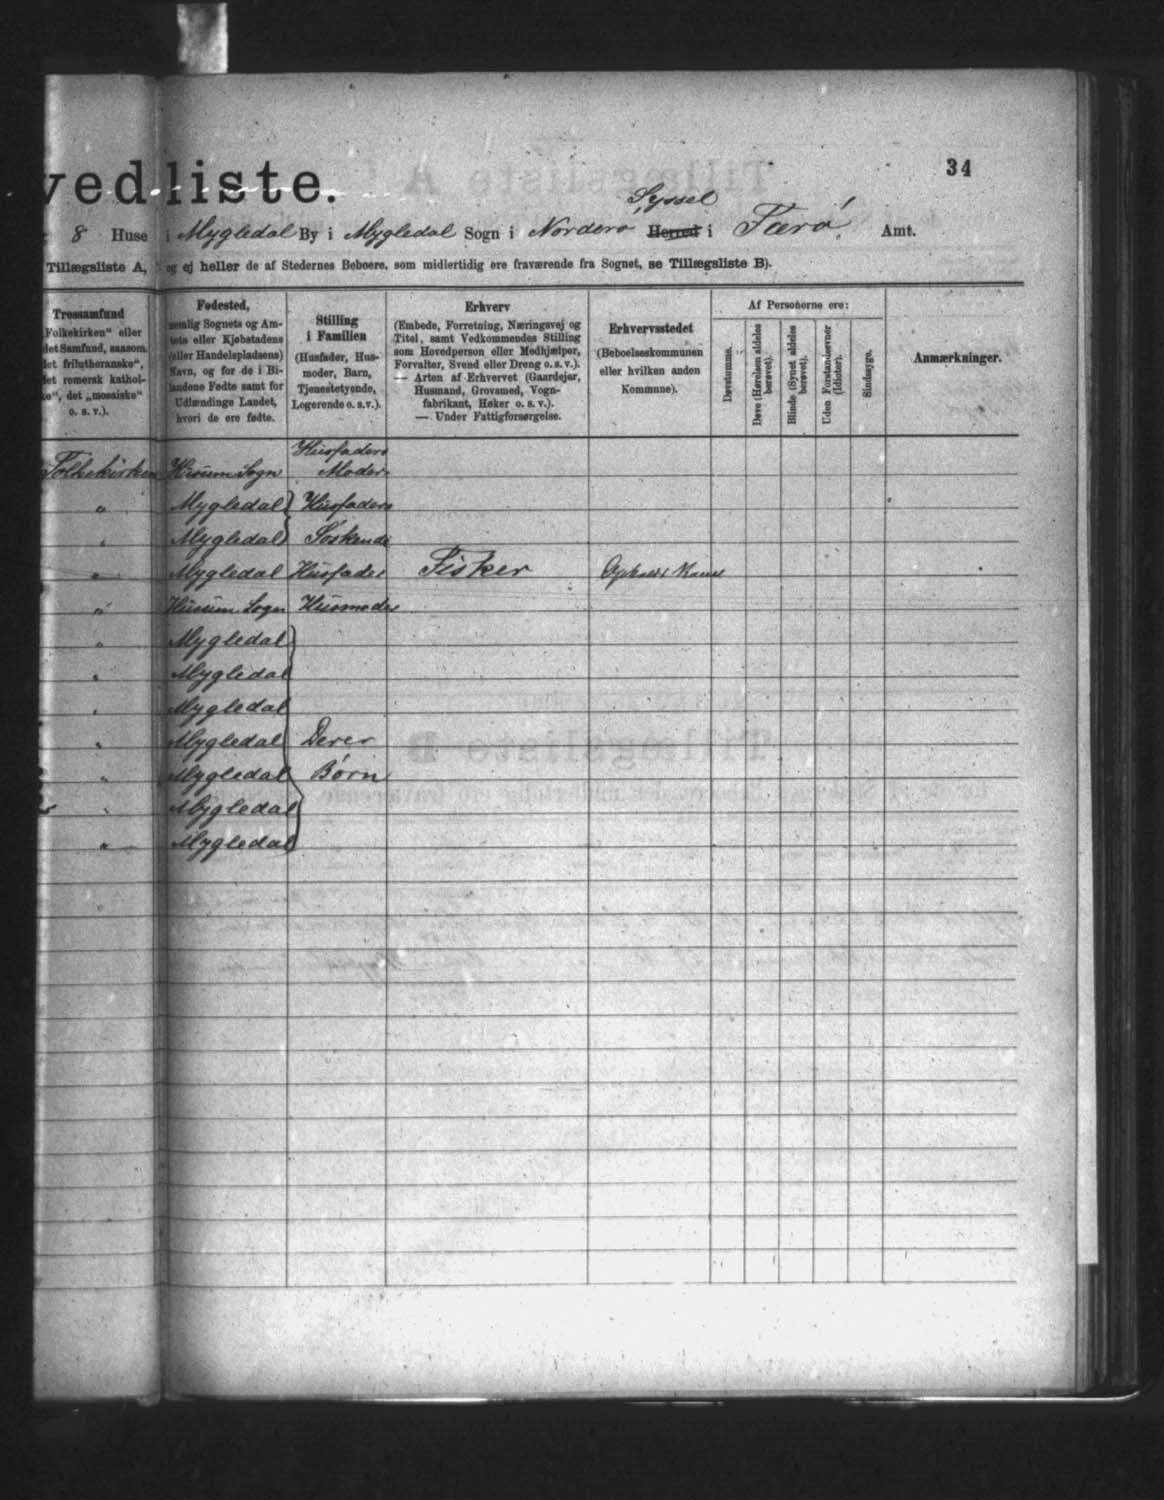 vedliste.
34
Syssel
8 Huse i Mygledal By i Mygledal Sogn i Norderø Herred i Færø Amt.
Tillægsliste A, og ej heller de af Stedernes Beboere, som midlertidig ere fraværende fra Sognet, se Tillægsliste B).
Trossamfund
Folkekirken" eller
det Samfund, saasom
det frilutheranske",
det romersk kathol-
ke", det „mosaiske"
o. s. v.).
Fødested,
nemlig Sognets og Am-
tets eller Kjøbstadens
(eller Handelspladsens)
Navn, og for de i Bi-
landene Fødte samt for
Udlændinge Landet,
hvori de ere fødte.
Stilling
i Familien
(Husfader, Hus-
moder, Barn,
Tjenestetyende,
Logerende o. s. v.).
Erhverv
(Embede, Forretning, Næringsvej og
Titel, samt Vedkommendes Stilling
som Hovedperson eller Medhjælper,
Forvalter, Svend eller Dreng o. s. v.).
— Arten af Erhvervet (Gaardejer,
Husmand, Grovsmed, Vogn-
fabrikant, Høker o. s. v.).
— Under Fattigforsørgelse.
Erhvervsstedet
(Beboelseskommunen
eller hvilken anden
Kommune).
Af Personerne ere:
Døvstumme.
Døve (Hørelsen aldeles
berøvet).
Blinde (Synet aldeles
berøvet).
Uden Forstandsevner
(Idioter).
Sindssyge.
Anmærkninger.
Husfaders
Folkekirken Husum Sogn Moder
" Mygledal Husfaders
" Mygledal Søskende
" Mygledal Husfader Fisker
" Husum Sogn Husmoder
" Mygledal
" Mygledal
" Mygledal
" Mygledal Deres
" Mygledal Børn
" Mygledal
" Mygledal
Tillægsliste A
Tillægsliste B